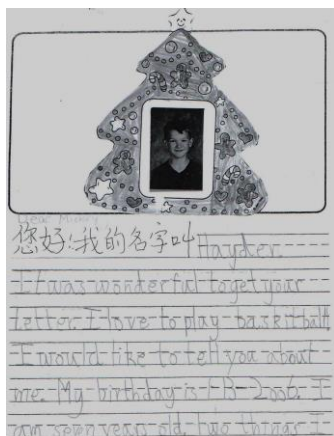 Dear
您好!我的名字叫 Hayden.
It was wonderful to get your
letter. I love to play baskitball
I would like to tell you about
me. My birthday is 1-13-2006. I
am seven years old. two things I